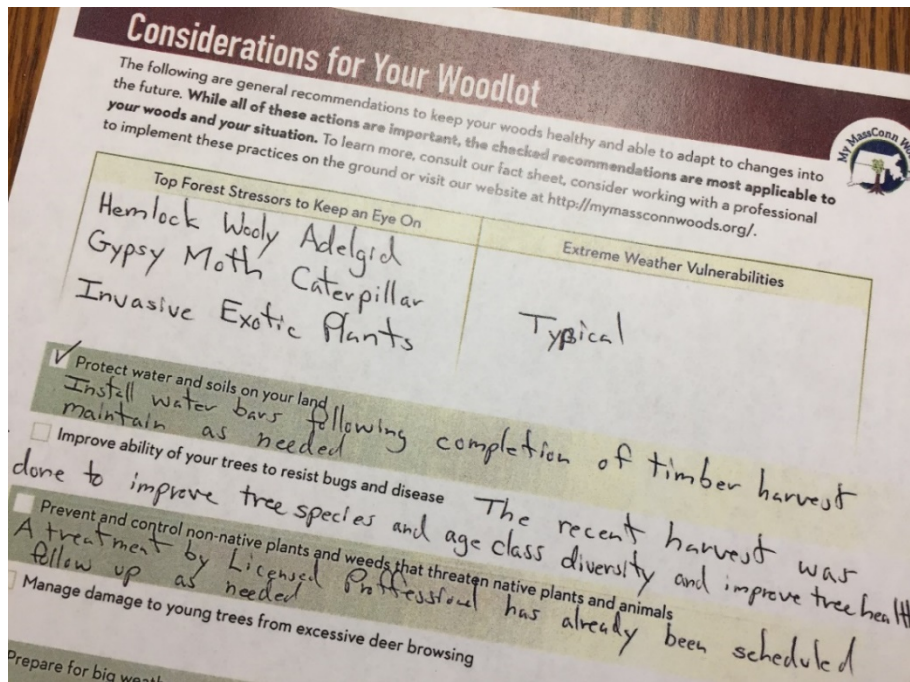 Considerations for Your Woodlot
The following are general recommendations to keep your woods healthy and able to adapt to changes into
the future. While all of these actions are important, the checked recommendations are most applicable to
your woods and your situation. To learn more, consult our fact sheet, consider working with a professional
to implement these practices on the ground or visit our website at http://mymassconnwoods.org/.
My MassConn Wo
Top Forest Stressors to Keep an Eye On
Hemlock Wooly Adelgid
Gypsy Moth Caterpillar
Invasive Exotic Plants
Extreme Weather Vulnerabilities
Typical
Protect water and soils on your land
Install water bars following completion of timber harvest
maintain as needed
Improve ability of your trees to resist bugs and disease The recent harvest was
done to improve tree species and age class diversity and improve tree healt
Prevent and control non-native plants and weeds that threaten native plants and animals
A treatment by Licensed Proffessional has already been scheduled
follow up as needed
Manage damage to young trees from excessive deer browsing
Prepare for big weat